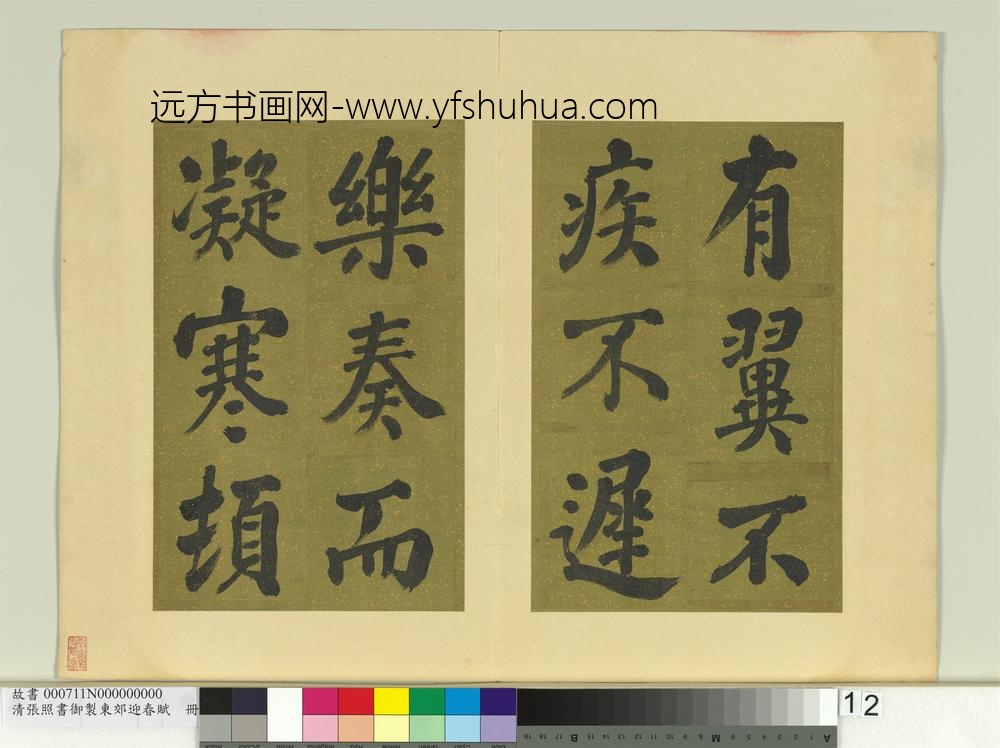 远方书画网-www.yfshuhua.com
有翼不
疾不遲
樂奏而
凝寒頓
故書 000711N000000000
清張照書御製東郊迎春賦 冊
12